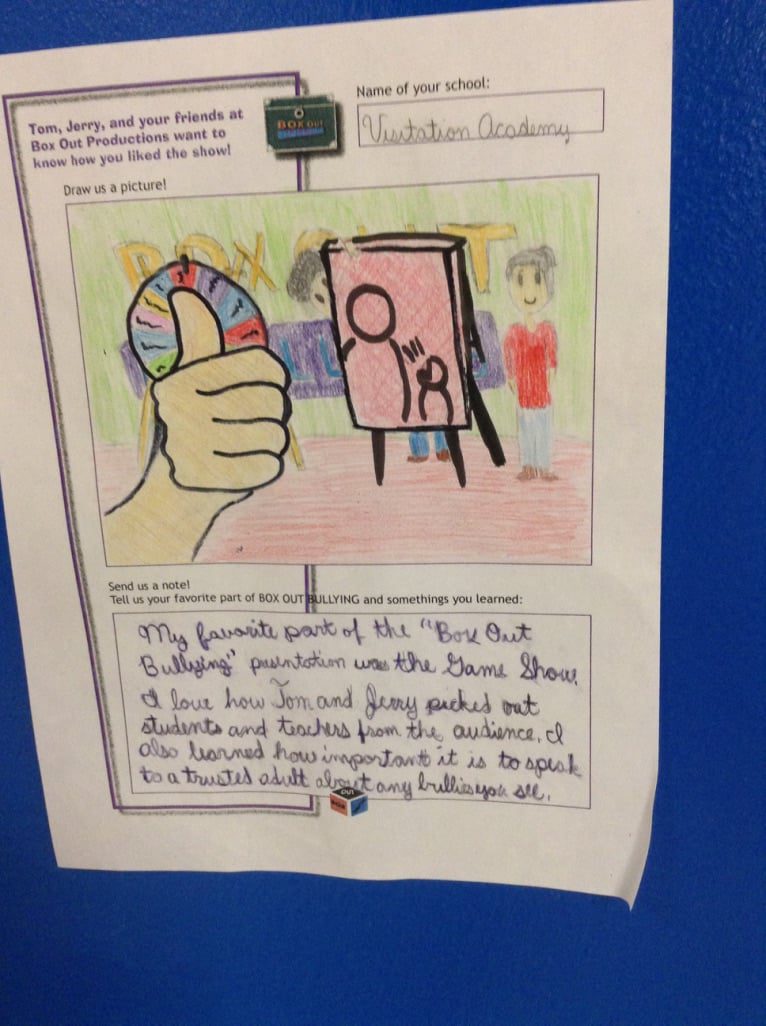 Name of your school:
Visitation Academy
Tom, Jerry, and your friends at
Box Out Productions want to
know how you liked the show!
BOX OUT
Draw us a picture!
BOX OUT
Send us a note!
Tell us your favorite part of BOX OUT BULLYING and somethings you learned:
My favorite part of the "Box Out
Bullying" presentation was the Game Show.
I love how Tom and Jerry picked out
students and teachers from the audience. I
also learned how important it is to speak
to a trusted adult about any bullies you see.
OUT
BOX